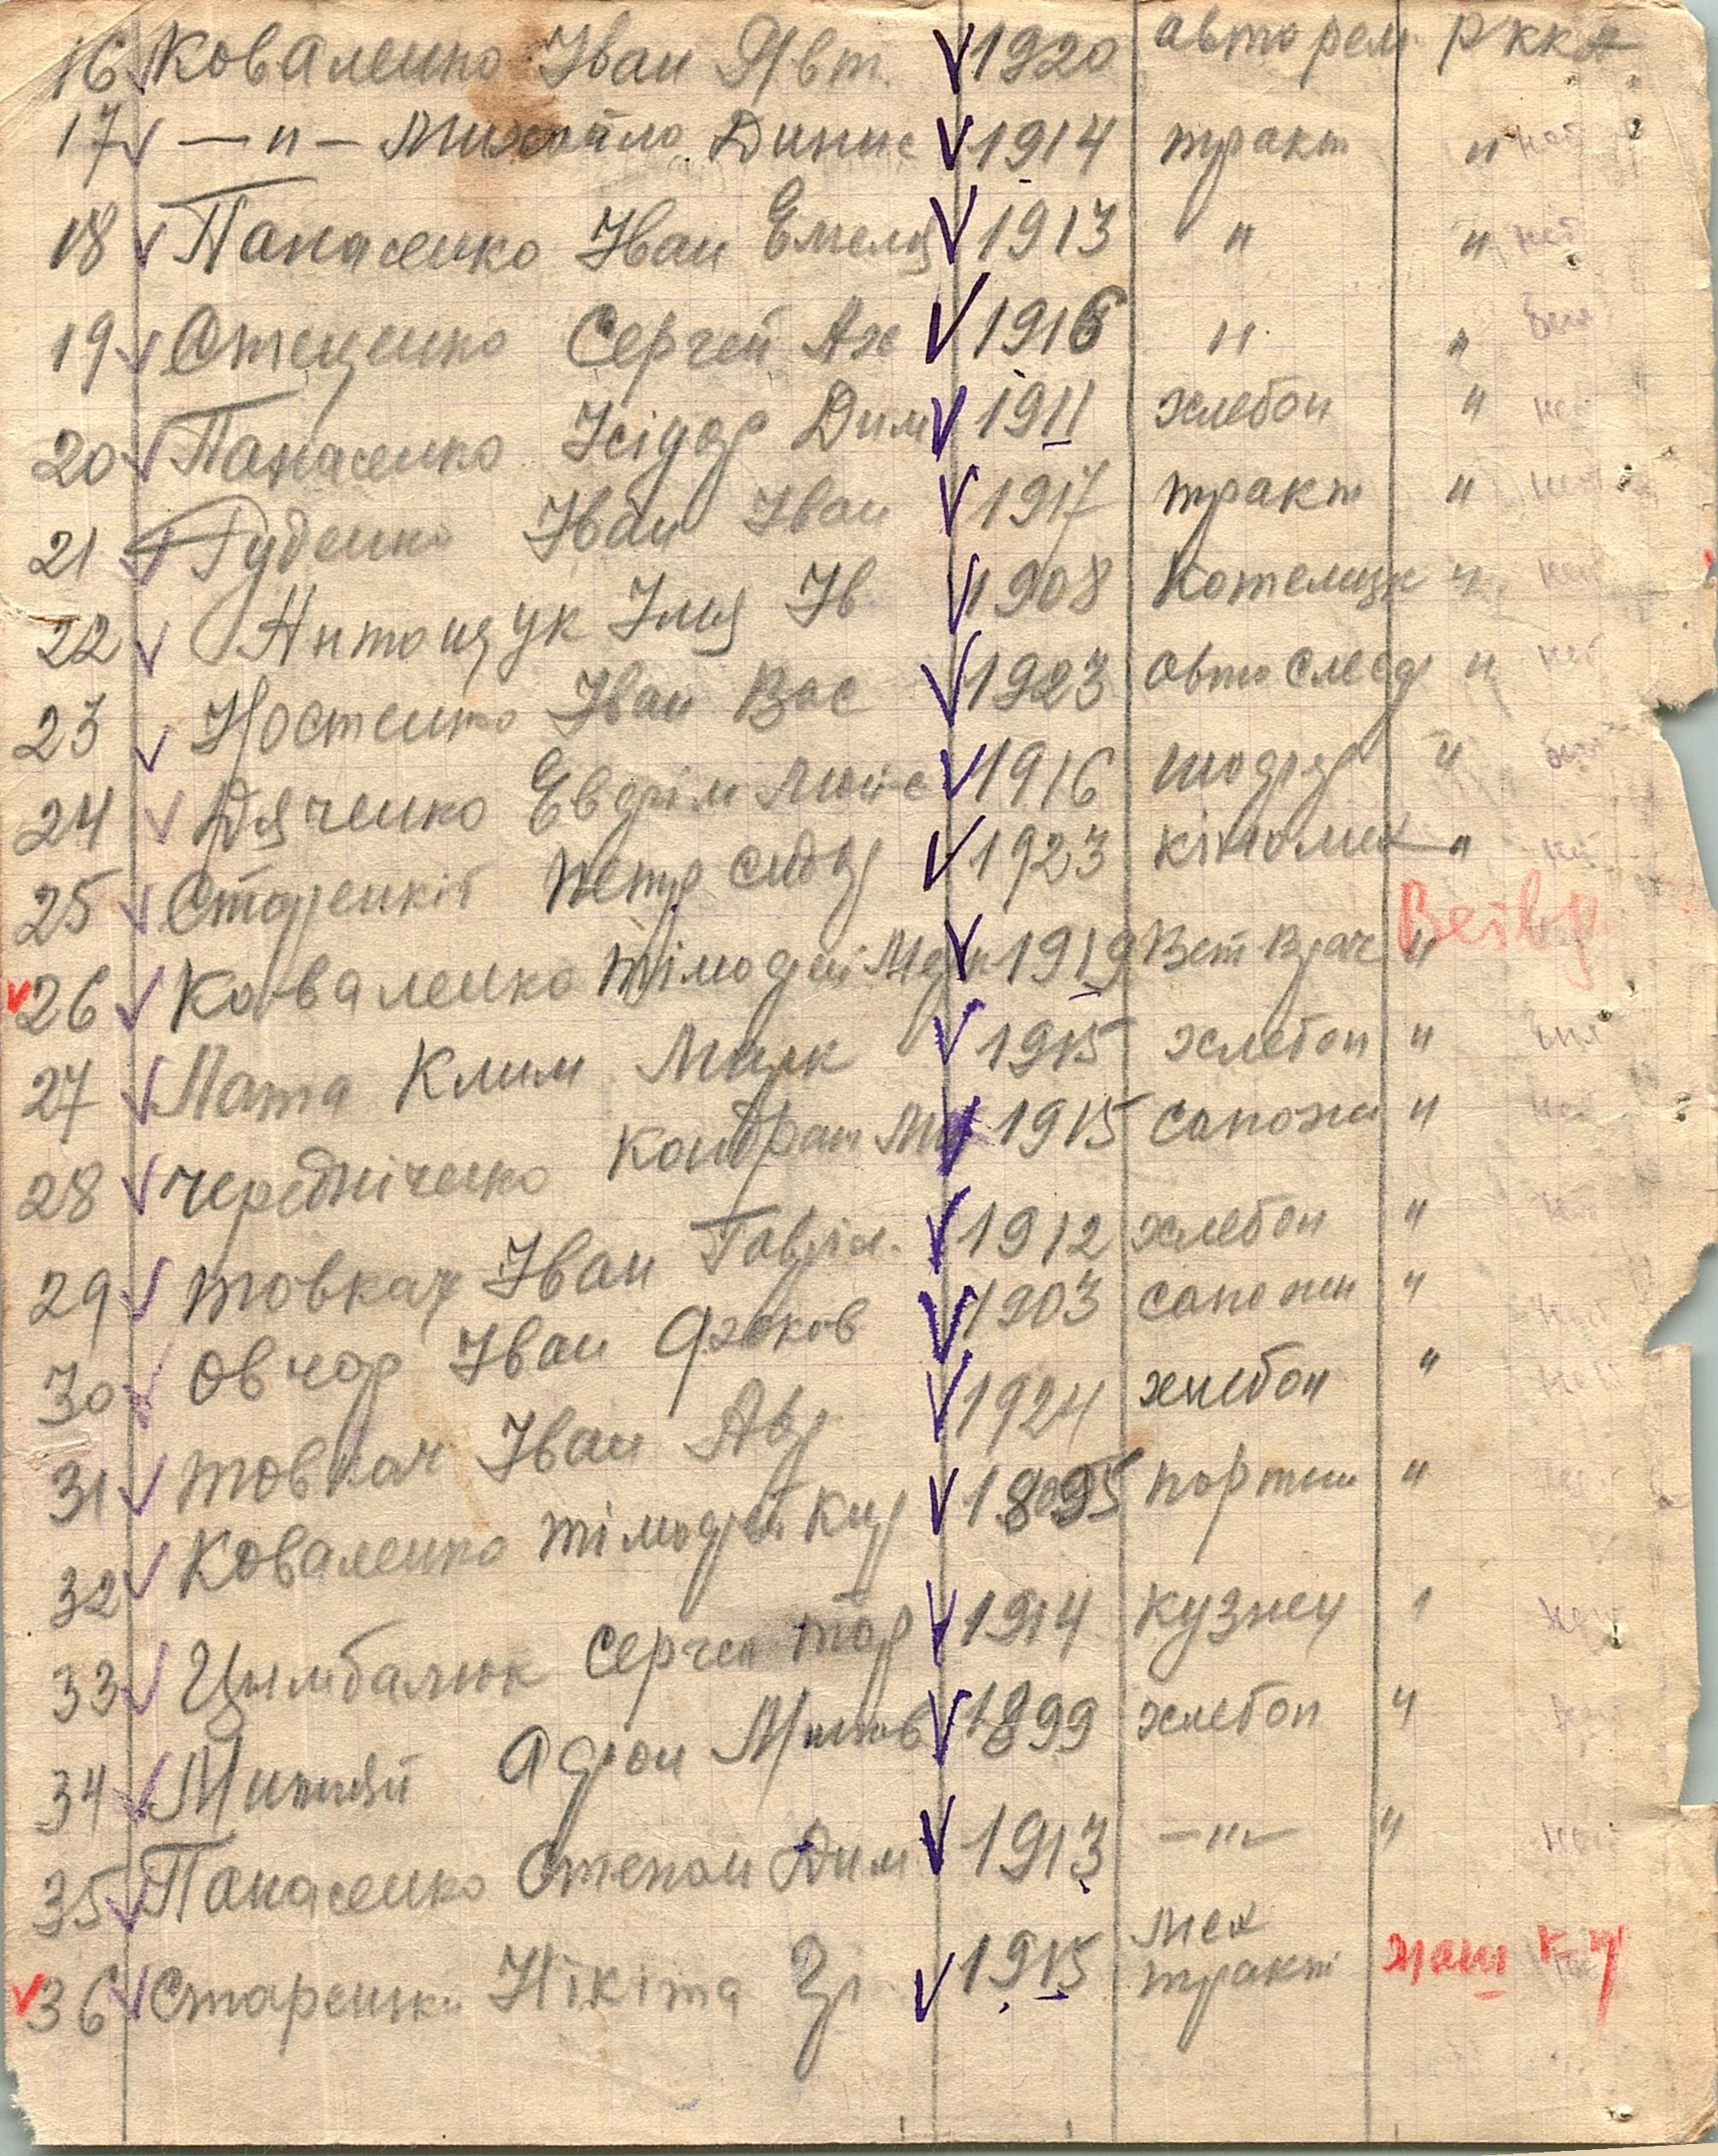 16 Коваленко Іван Явт. 1920 авторем РККА
17 —"— Михайло Динис 1914 тракт " нет
18 Панасенко Іван Емеля 1913 " " нет
19 Стеценко Сергей Ах 1916 " "
20 Панасенко Ісідор Дим 1911 хлебоп " нет
21 Руденко Іван Іван 1917 тракт " нет
22 Антощук Ілля Ів. 1908 Котельщик " нет
23 Костенко Іван Вас 1923 автослес " нет
24 Дяченко Евдрім Мойс 1916 шофер "
25 Старенкій Петр Сидор 1923 кіномех " нет
26 Коваленко Тімофей Мак 1919 Вет Врач " Ветвр
27 Пата Клим Марк 1915 хлебоп "
28 Чередніченко Кондрат Ма 1915 сапожн " нет
29 Товкач Іван Гаврил. 1912 хлебоп " нет
30 Овчар Іван Яхков 1903 сапожн " нет
31 Товкач Іван Авр 1924 хлебоп " нет
32 Коваленко Тімофей Кир 1895 портни "
33 Цымбалюк Сергей Тор 1914 кузнец " нет
34 Митяй Афон Митов 1899 хлебоп " нет
35 Панасенко Степан Дим 1913 —"— " нет
36 Старенки Нікіта Зі 1915 мех тракт